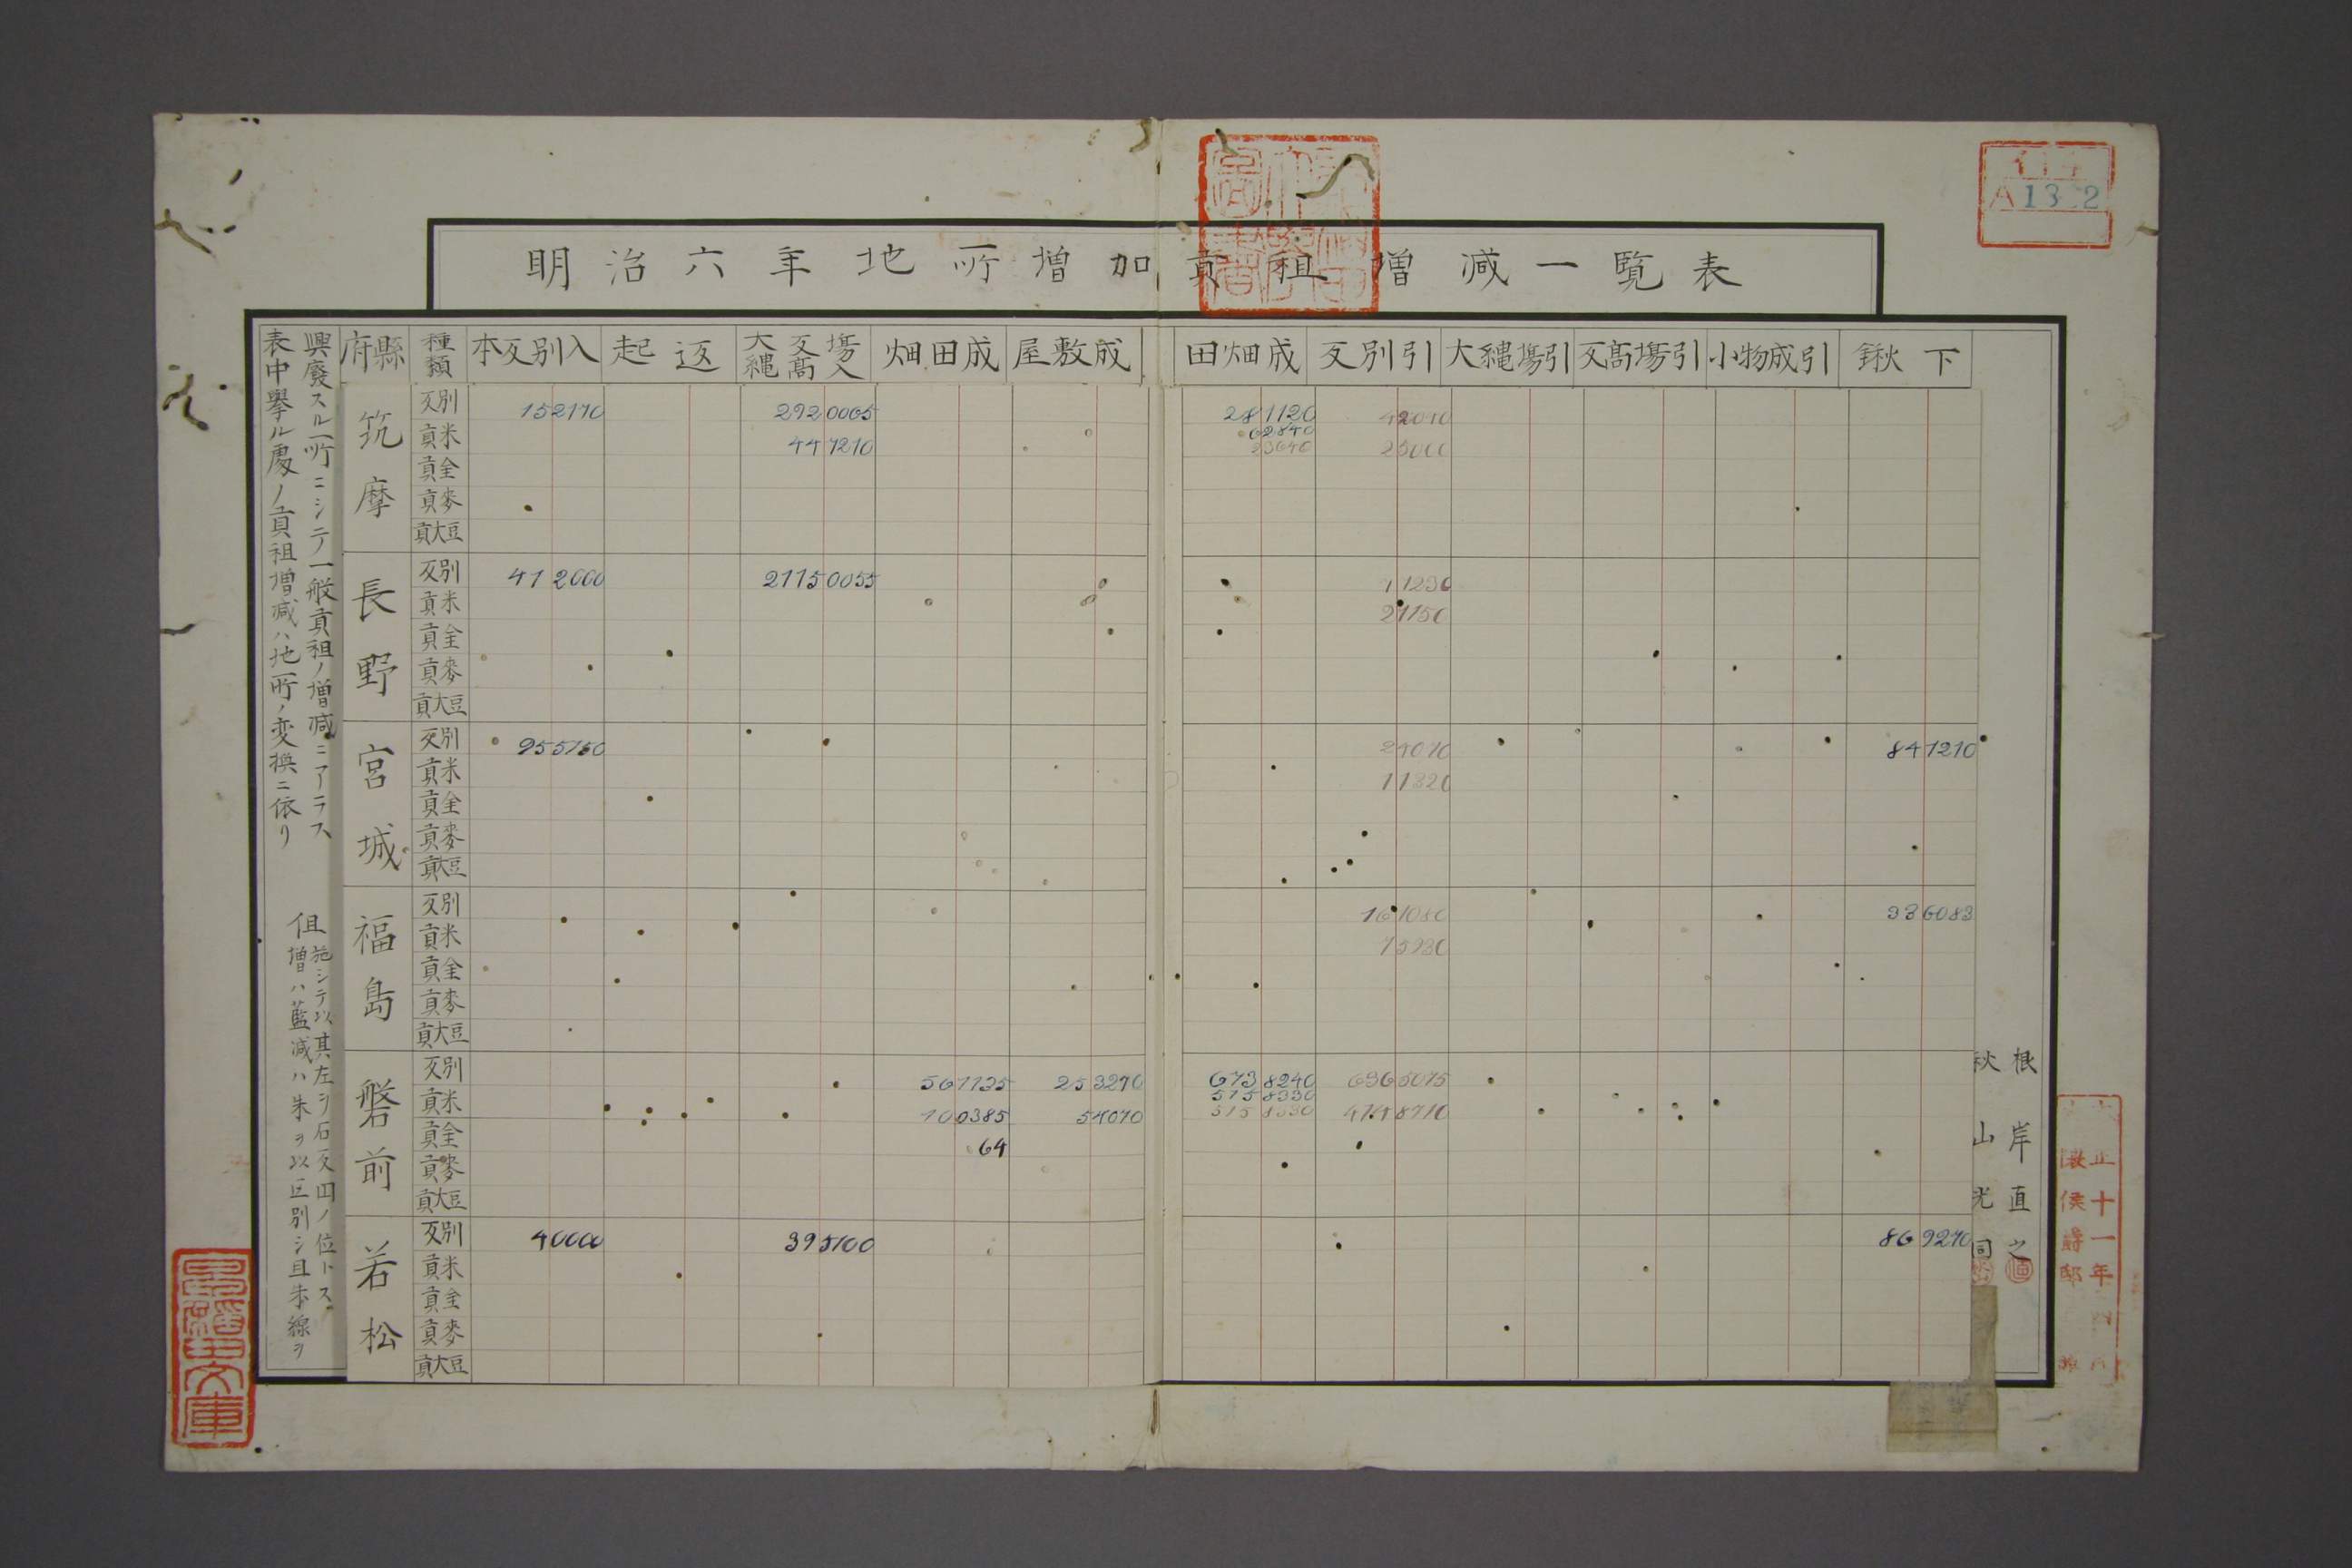 明治六年地所増加貢租増減一覧表
A13 2
府縣 種類 本反別入 起返 大縄反高場入 畑田成 屋敷成 田畑成 反別引 大縄場引 反高場引 小物成引 鍬下
筑摩
反別 152170 2920065 281120
貢米 447210 62840
貢金
貢麥
貢大豆
長野
反別 412000 21150055 11230
貢米 21150
貢金
貢麥
貢大豆
宮城
反別 255150 24010 841210
貢米 11320
貢金
貢麥
貢大豆
福島
反別 161080 336083
貢米
貢金
貢麥
貢大豆
磐前
反別 561135 253270 6738240 6365075
貢米 100385 54070 5158330
貢金 64
貢麥
貢大豆
若松
反別 40000 395100 869270
貢米
貢金
貢麥
貢大豆
表中擧ル處ノ貢租増減ハ地所ノ変換ニ依リ
興廢スル所ニシテ一般貢租ノ増減ニアラス
但増ハ藍減ハ朱ヲ以区別シ且朱線ヲ
施シテ以其左ヲ石反円ノ位トス
根岸直之
秋山光同
文庫